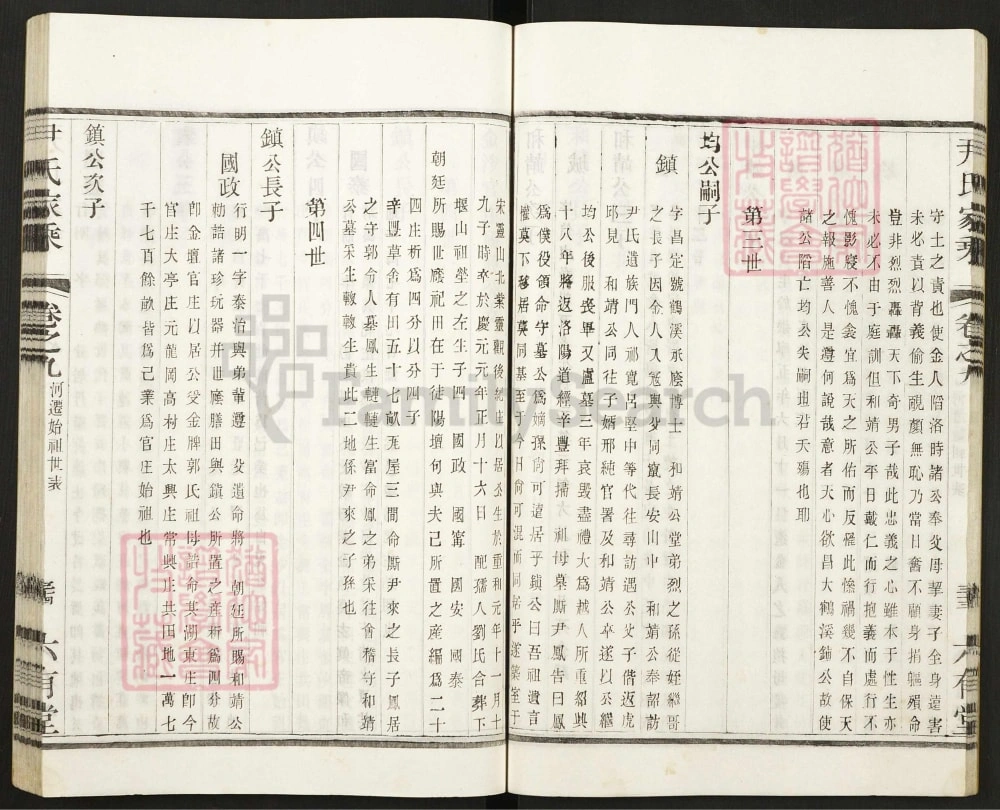 尹氏家乘
卷之九
六有堂
守土之責也使金人陷洛時諸公奉父母挈妻子全身遠害
未必責以背義偷生靦顏無恥乃當日奮不顧身捐軀殞命
豈非烈烈轟轟天下奇男子哉此忠義之心雖本于性生亦
未必不由于庭訓但和靖公平日戴仁而行抱義而處行不
愧影寢不愧衾宜為天之所佑而反罹此慘禍幾不自保天
之報施善人是遵何說哉意者天心欲昌大鶴溪鎮公故使
諸公陷亡均公失嗣耳君天殤也耶
第三世
均公嗣子
鎮
字昌定號鶴溪承廕博士 和靖公堂弟烈之孫從姪繼哥
之長子因金人入寇與父同竄長安山中 和靖公奉詔訪
尹氏遺族門人祁寬呂堅中等代往尋訪遇公父子偕返虎
邱見 和靖公同往子婿邢純官署及和靖公卒遂以公繼
均公後服喪畢又廬墓三年哀毀盡禮大為越人所重紹興
十八年將返洛陽道經辛豐拜掃方祖母墓厮尹鳳告曰鳳
為僕役領命守墓公為嫡孫尚可遠居乎鎮公曰吾祖遺言
權莫下移居莫同基至于今日倘可混而同居乎遂築室于
宋靈山北業靈觀後總庄以居公生於重和元年十一月十
九子時卒於慶元元年正月十六日 配孺人劉氏合葬下
堰山祖塋之左生子四 國政 國寗 國安 國泰
朝廷所賜世廕祀田在于徒陽壇句與夫己所置之產編為二十
四庄析為四分以貽四子
辛豐草舍有田五十七畝瓦屋三間命厮尹來之長子鳳居
之守郭令人墓鳳生韃韃生富命鳳之弟采往會稽守和靖
公墓采生輓輓生貴此二地係尹來之子孫也
第四世
鎮公長子
國政
行明一字泰治與弟輩遵 父遺命將 朝廷所賜和靖公
勅誥諸珍玩器并世廕膳田與鎮公所置之產析為四分故
卽金壇官庄以居公受金牌郭氏祖母誥命其湖東庄卽今
官庄大亭庄元龍岡高村庄太興庄常興庄共田地一萬七
千七百餘畝皆為己業為官庄始祖也
鎮公次子
尹氏家乘
卷之九
河遷始祖世表
六有堂
FamilySearch